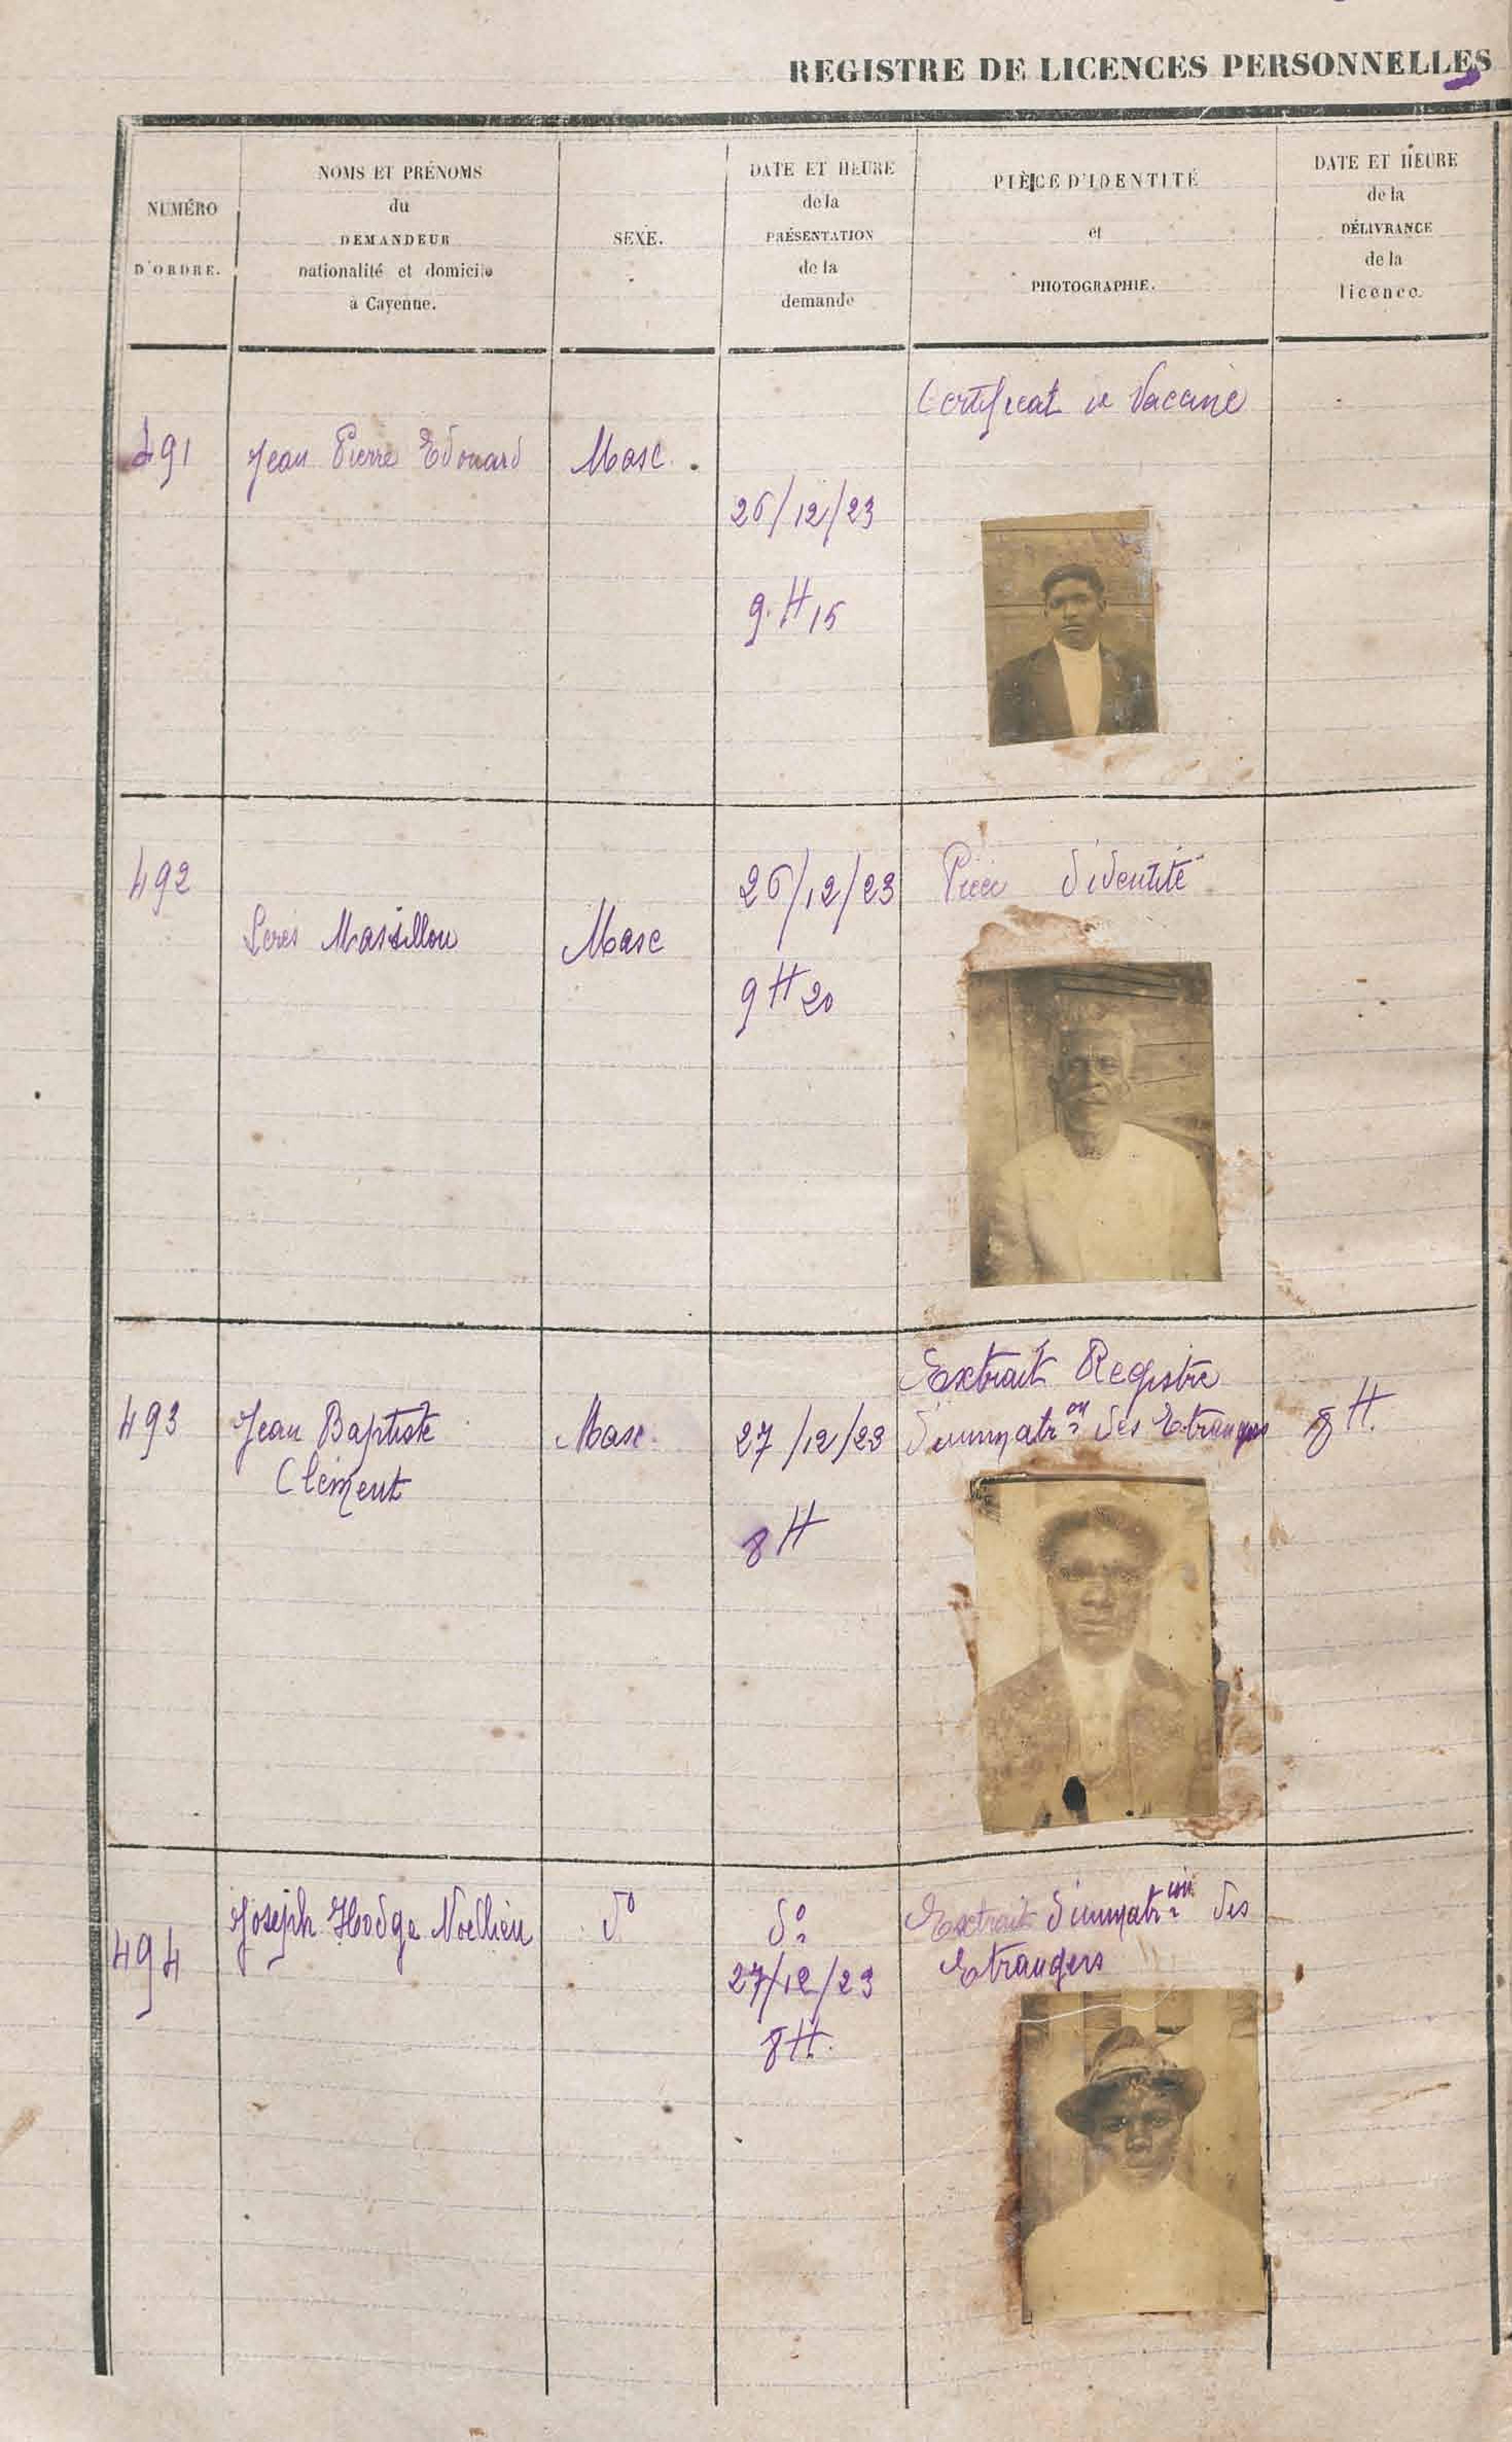 REGISTRE DE LICENCES PERSONNELLES
NUMÉRO
D'ORDRE.
NOMS ET PRÉNOMS
du
DEMANDEUR
nationalité et domicile
à Cayenne.
SEXE.
DATE ET HEURE
de la
PRÉSENTATION
de la
demande
PIÈCE D'IDENTITÉ
et
PHOTOGRAPHIE.
DATE ET HEURE
de la
DÉLIVRANCE
de la
licence.
Certificat de Vaccine
491 Jean Pierre Edouard Masc.
26/12/23
9.H 15
492 26/12/23 Pièce d'identité
Massillon Masc
9 H 20
Extrait Registre
493 Jean Baptiste Masc. 27/12/23 d'immatr.on des Etrangers 8 H.
Clément
8 H
494 Joseph Hodge Noellien do do Extrait d'immatr.on des
27/12/23 Etrangers
8 H.